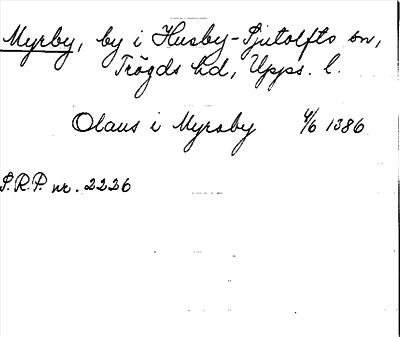 Myrby, by i Husby-Sjutolfts sn,
Trögds hd, Upps. l.
Olaus i Myroby 4/6 1386
S.R.P. nr. 2226